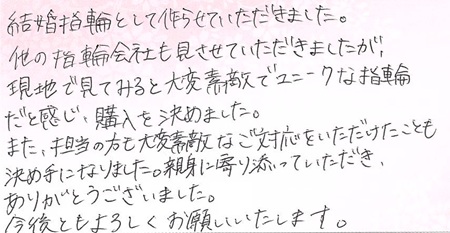 結婚指輪として作らせていただきました。
他の指輪会社も見させていただきましたが、
現地で見てみると大変素敵でユニークな指輪
だと感じ、購入を決めました。
また、担当の方も大変素敵なご対応をいただけたことも
決め手になりました。親身に寄り添っていただき、
ありがとうございました。
今後ともよろしくお願いいたします。